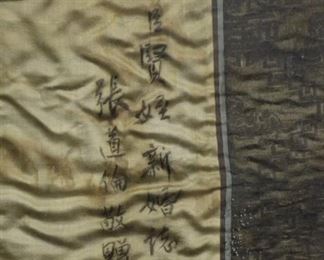 賢姪新婚誌
張道倫敬贈